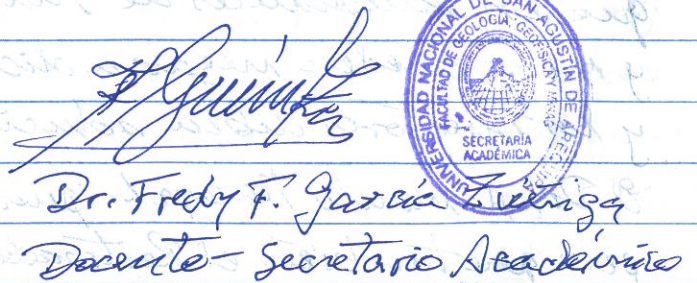 UNIVERSIDAD NACIONAL DE SAN AGUSTIN DE AREQUIPA
FACULTAD DE GEOLOGIA, GEOFISICA Y MINAS
SECRETARÍA
ACADÉMICA
Dr. Fredy F. García Zúñiga
Docente - Secretario Académico